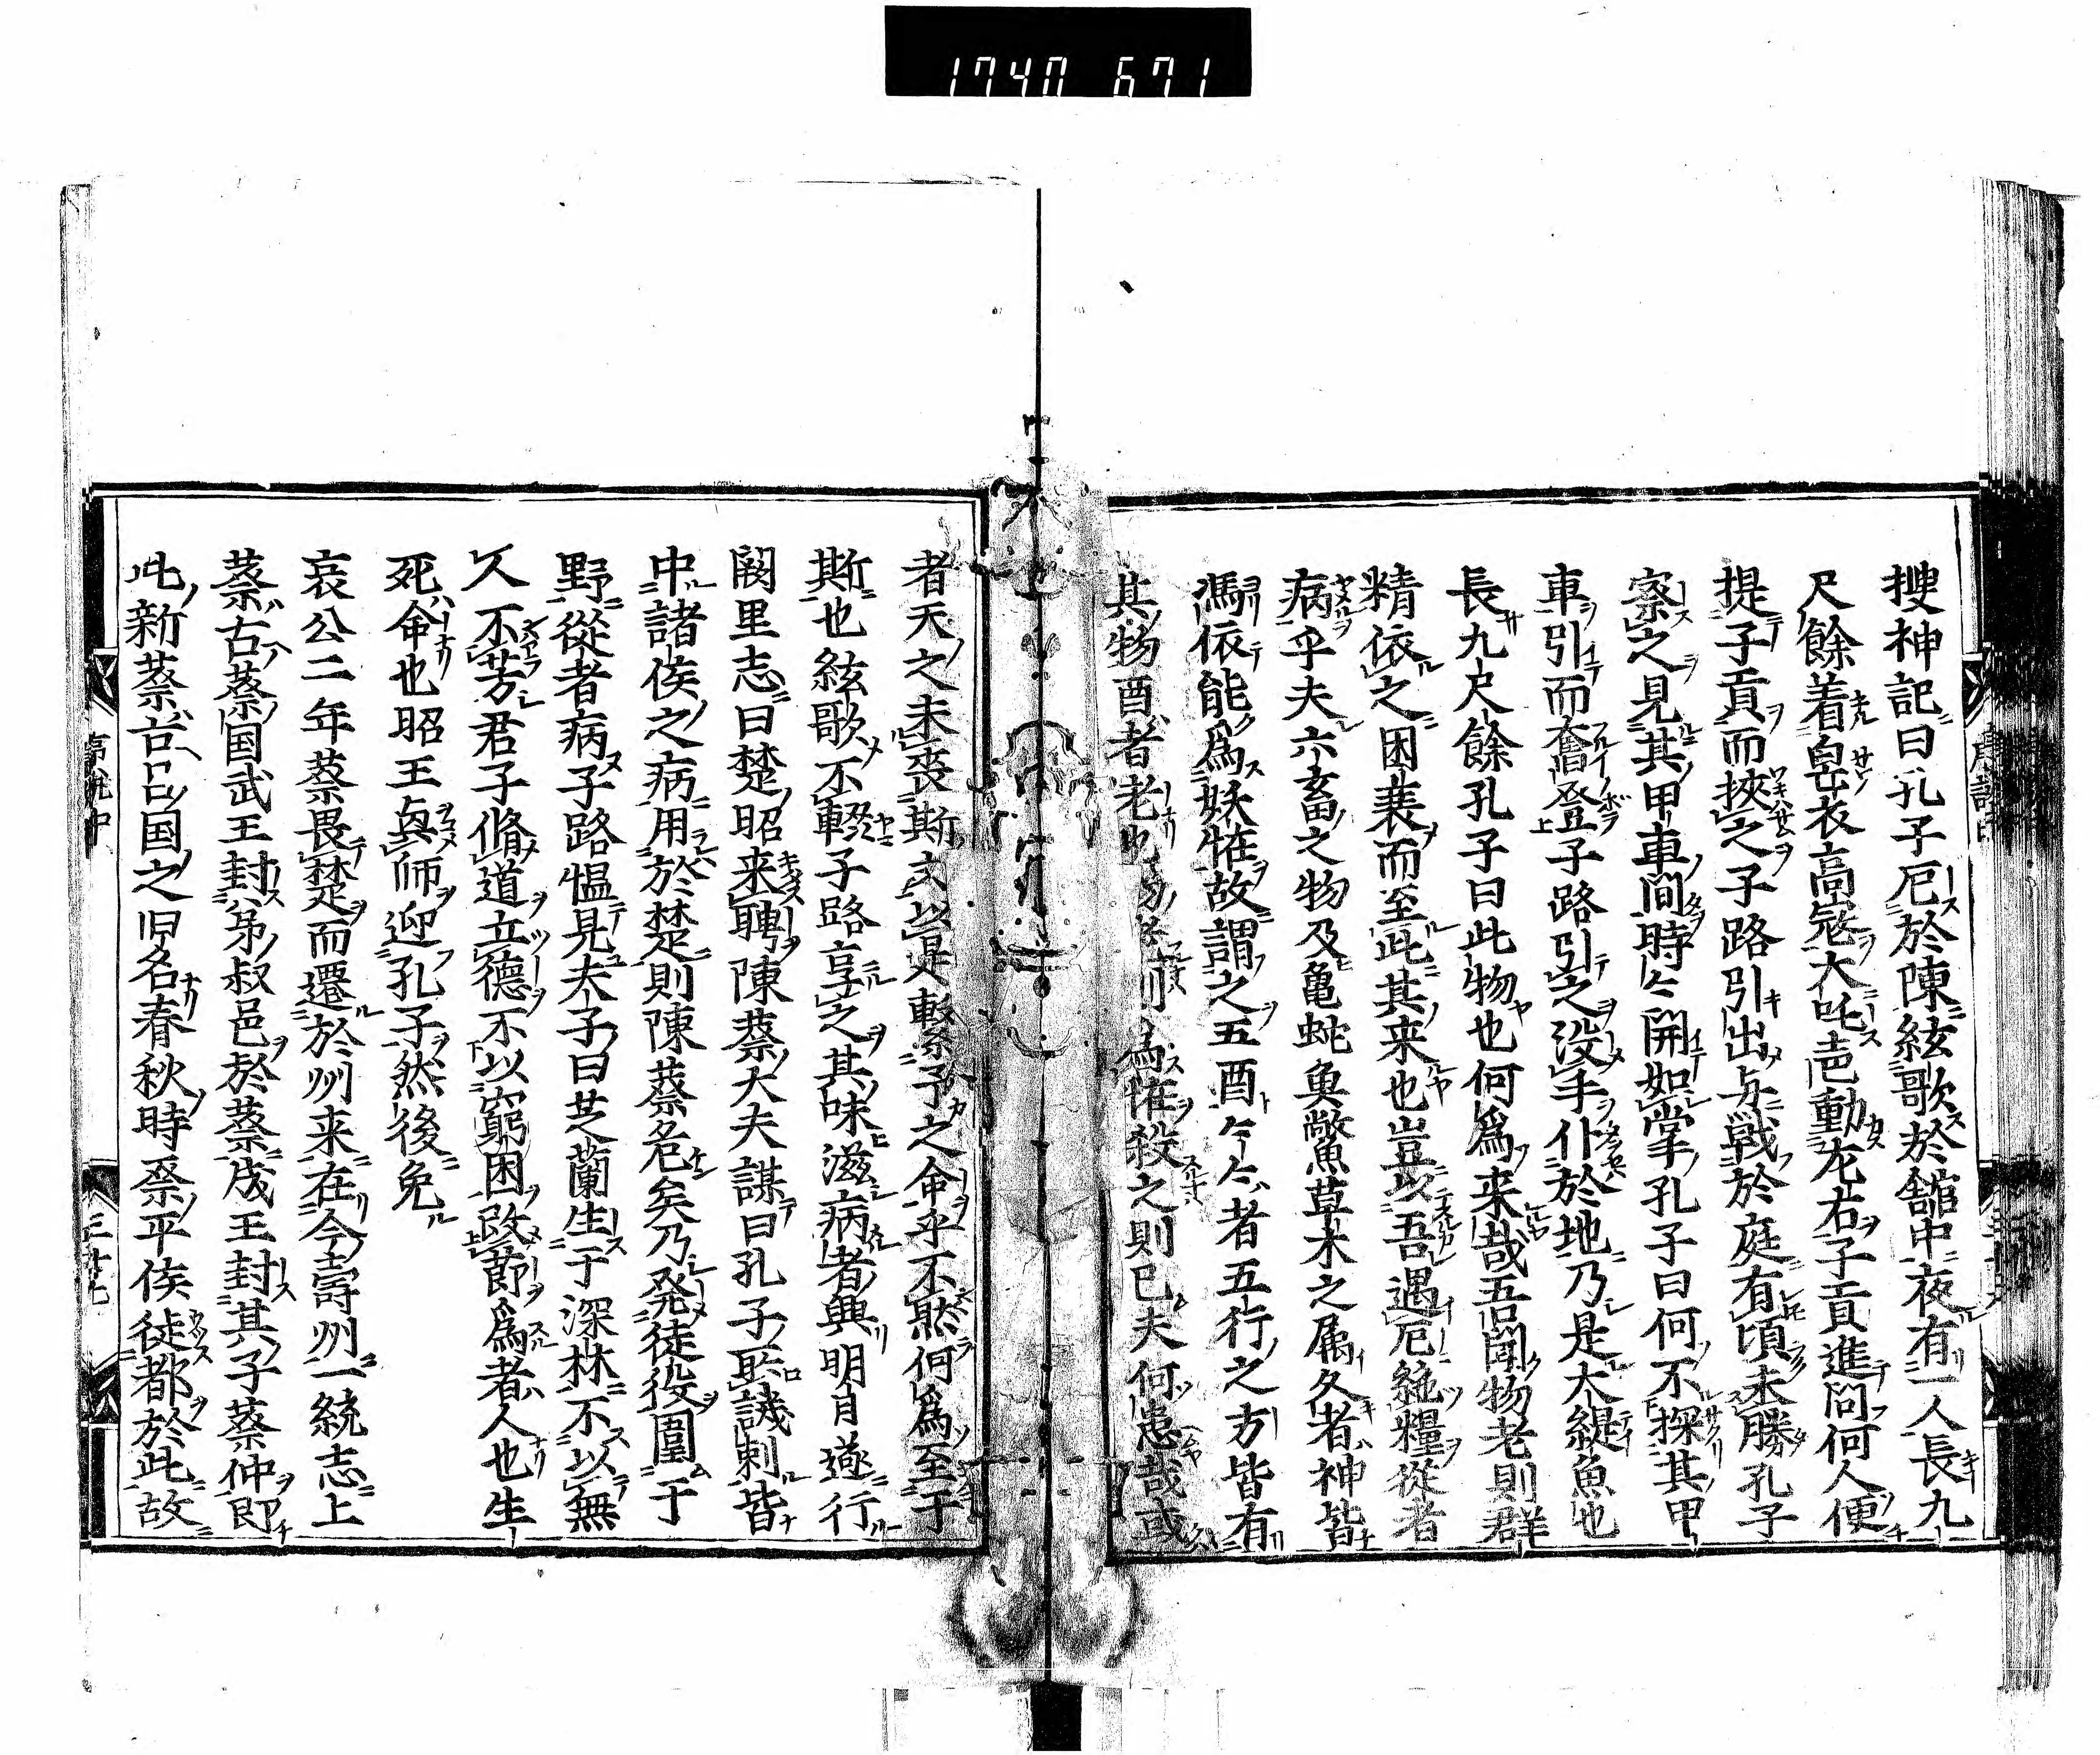 1740 671
搜神記曰孔子厄於陳絃歌於舘中夜有一人長九
尺餘着皀衣高冠大吒声動左右子貢進問何人便
提子貢而挾之子路引出与戦於庭有頃未勝孔子
察之見其甲車間時々開如掌孔子曰何不探其甲
車引而奮登子路引之没手仆於地乃是大鯷魚也
長九尺餘孔子曰此物也何為来哉吾聞物老則群
精依之因衰而至此其来也豈以吾遇厄絶糧從者
病乎夫六畜之物及亀蛇魚鱉草木之属久者神皆
馮依能為妖恠故謂之五酉々々者五行之方皆有
其物酉者老也則為恠殺之則已夫何患哉或
者天之未喪斯文以是繋予之命乎不然何為至于
斯也絃歌不輟子路享之其味滋病者興明日遂行
闕里志曰楚昭来聘陳蔡大夫謀曰孔子所譏刺皆
中諸侯之病用於楚則陳蔡危矣乃発徒役圍于
野從者病子路慍見夫子曰芝蘭生于深林不以無
人不芳君子脩道立德不以窮困改節為者人也生
死命也昭王興師迎孔子然後免
哀公二年蔡畏楚而遷於州来在今壽州一統志上
蔡古蔡国武王封弟叔邑於蔡成王封其子蔡仲即
此新蔡古呂国之旧名春秋時蔡平侯徙都於此故
三十七